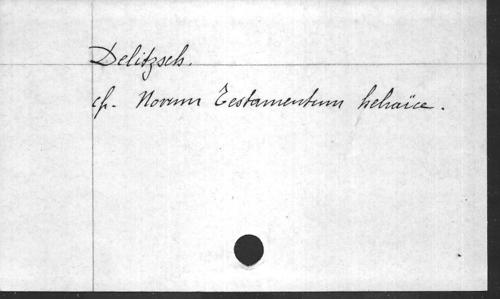 Delitzsch.
cfr. Novum Testamentum hebraïce.